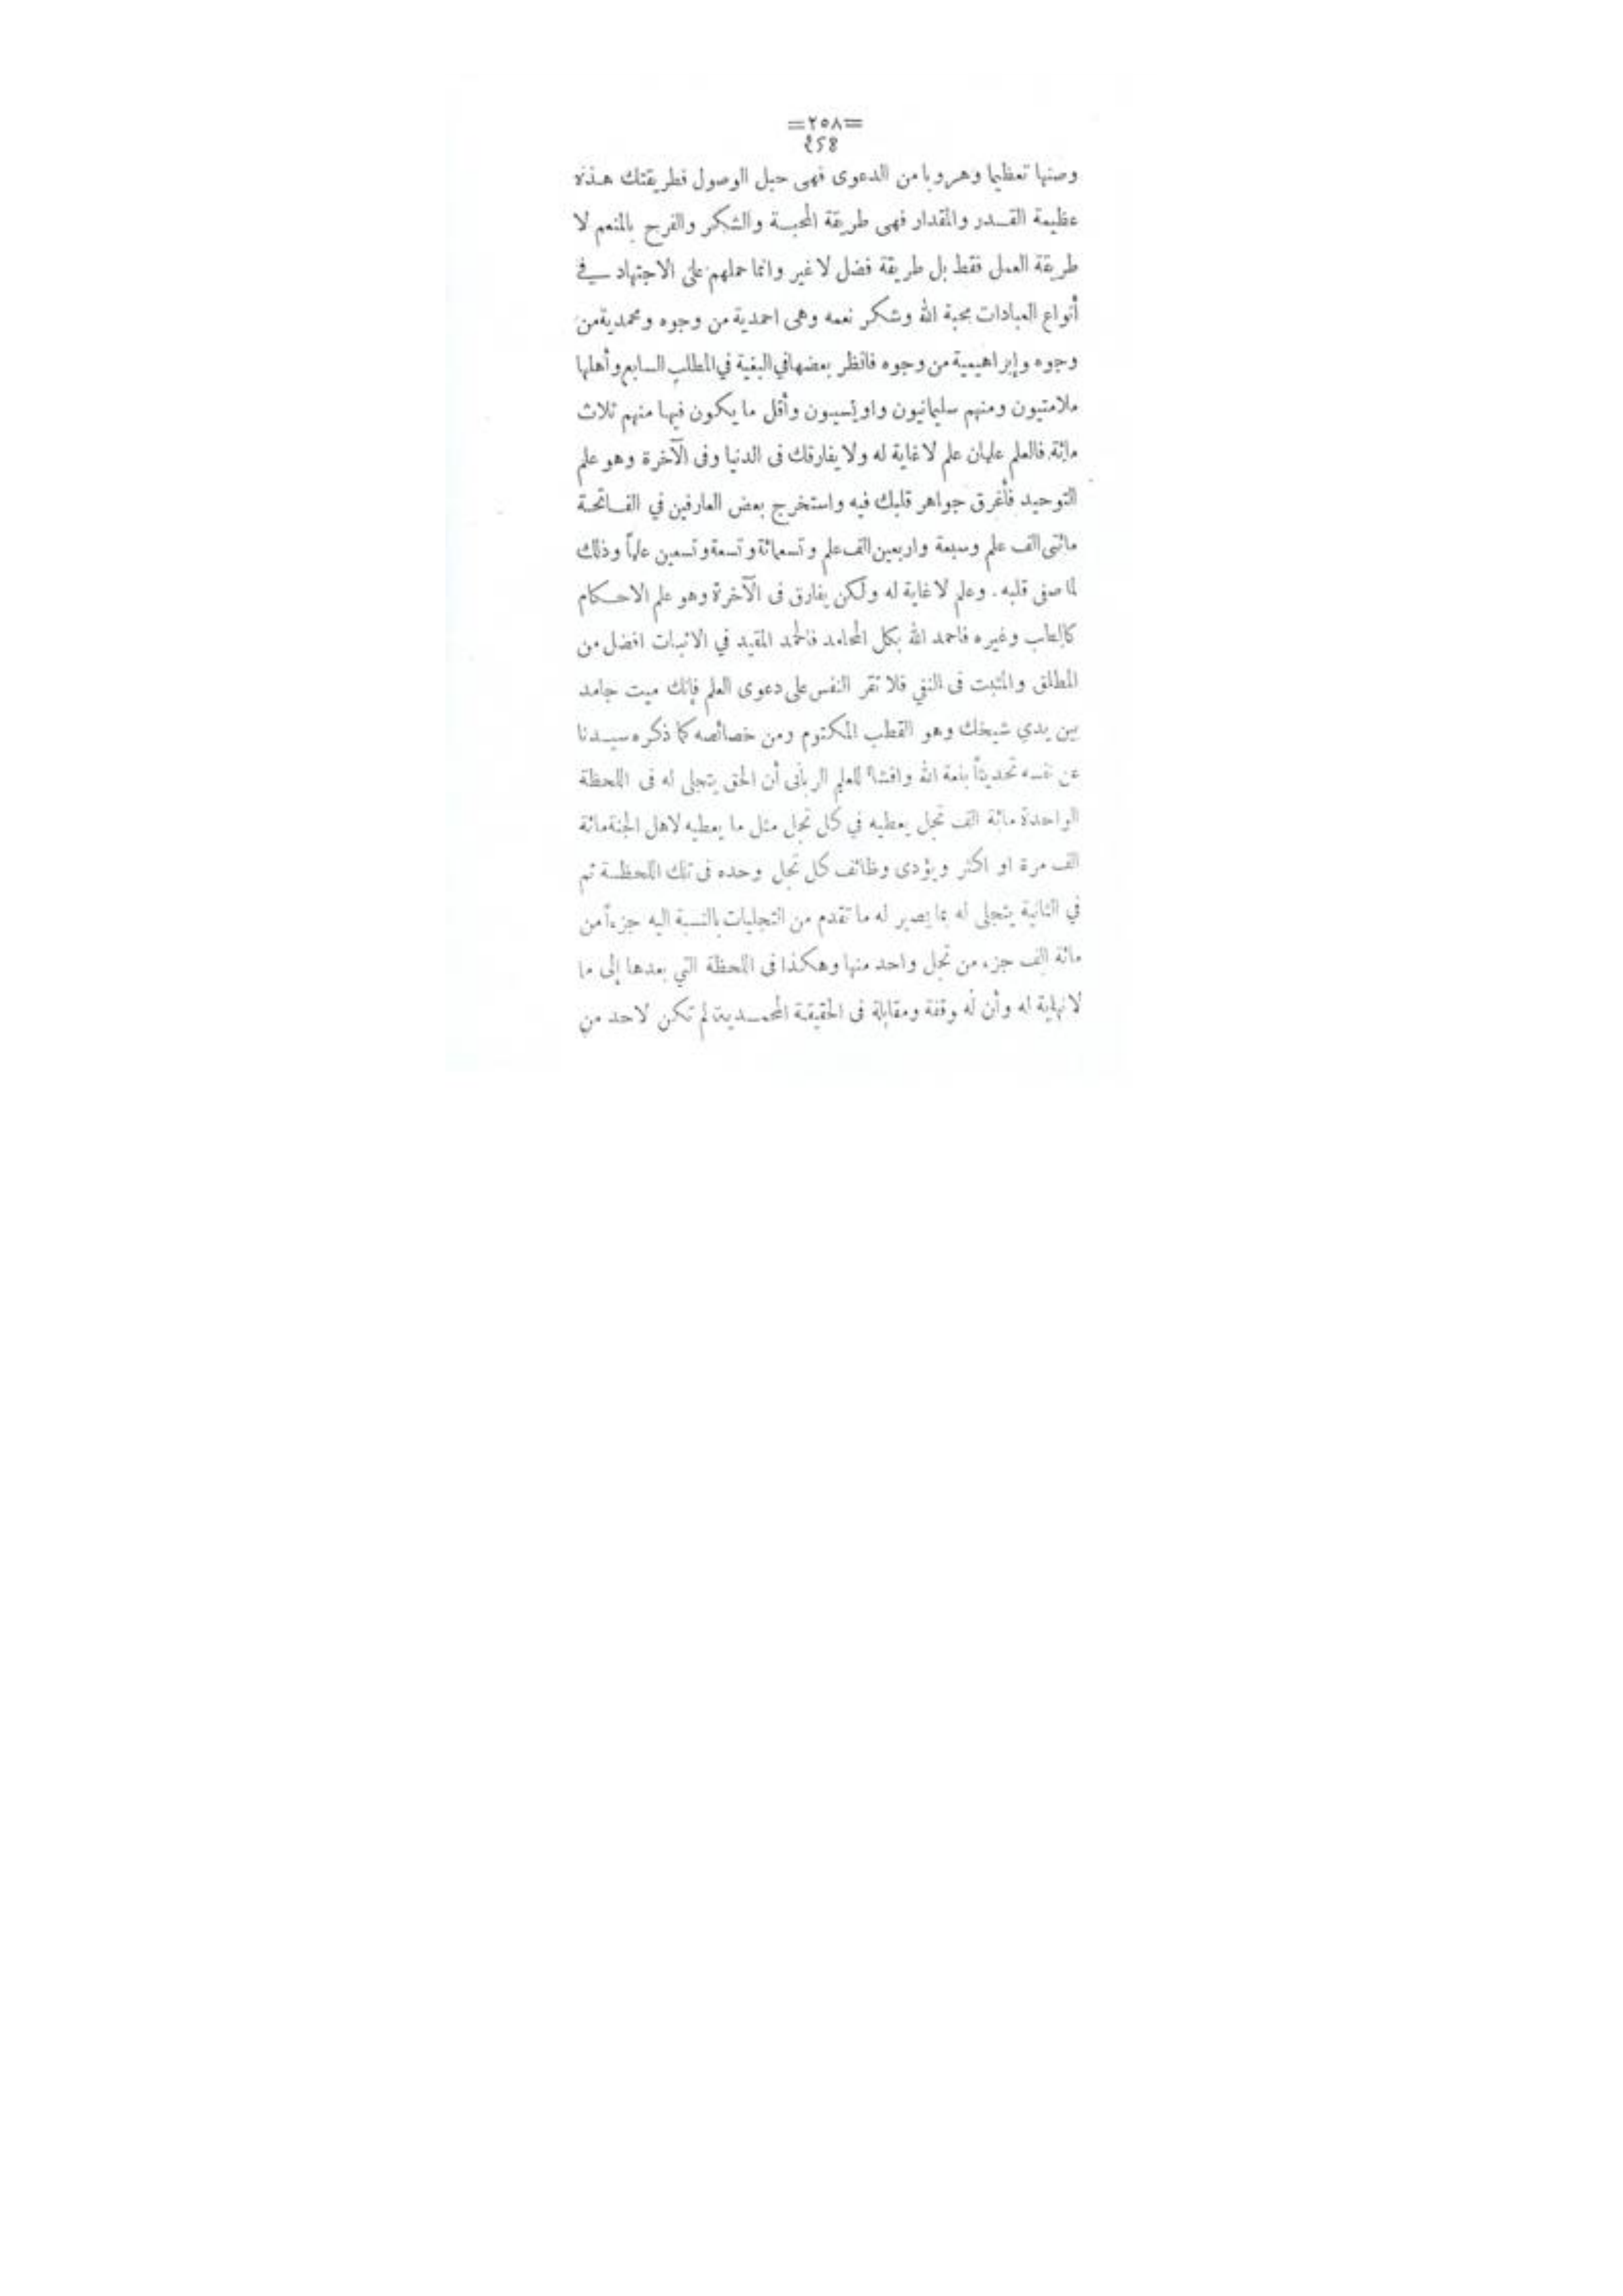 =٢٥٨=
٤58
وصنها تعظيما وهروبا من الدعوى فهى حبل الوصول فطريقتك هذه
عظيمة القدر والمقدار فهى طريقة المحبة والشكر والفرح بالمنعم لا
طريقة العمل فقط بل طريقة فضل لا غير وانما حملهم على الاجتهاد في
أنواع العبادات محبة الله وشكر نعمه وهى احمدية من وجوه ومحمدية من
وجوه وإبراهيمية من وجوه فانظر بعضها في البغية في المطلب السابع وأهلها
ملامتيون ومنهم سليمانيون واويسيون وأقل ما يكون فيها منهم ثلاث
مائة. فالعلم علمان علم لا غاية له ولا يفارقك فى الدنيا وفى الآخرة وهو علم
التوحيد فأغرق جواهر قلبك فيه واستخرج بعض العارفين في الفاتحة
مائتى الف علم وسبعة واربعين الف علم وتسعمائة وتسعة وتسعين علماً وذلك
لما صفى قلبه. وعلم لا غاية له ولكن يفارق فى الآخرة وهو علم الاحكام
كالعاب وغيره فاحمد الله بكل المحامد فالحمد المقيد في الاثبات افضل من
المطلق والمثبت فى النفي فلا تقر النفس على دعوى العلم فإنك ميت جامد
بين يدي شيخك وهو القطب المكتوم ومن خصائصه كما ذكره سيدنا
عن نفسه تحديثاً بنعمة الله وافشاءً للعلم الربانى أن الحق يتجلى له فى اللحظة
الواحدة مائة الف تجل يعطيه في كل تجل مثل ما يعطيه لاهل الجنة مائة
الف مرة او اكثر ويؤدى وظائف كل تجل وحده فى تلك اللحظة ثم
في الثانية يتجلى له بما يصير له ما تقدم من التجليات بالنسبة اليه جزءاً من
مائة الف جزء من تجل واحد منها وهكذا فى اللحظة التي بعدها إلى ما
لا نهاية له وأن له وقفة ومقابلة فى الحقيقة المحمدية لم تكن لاحد من